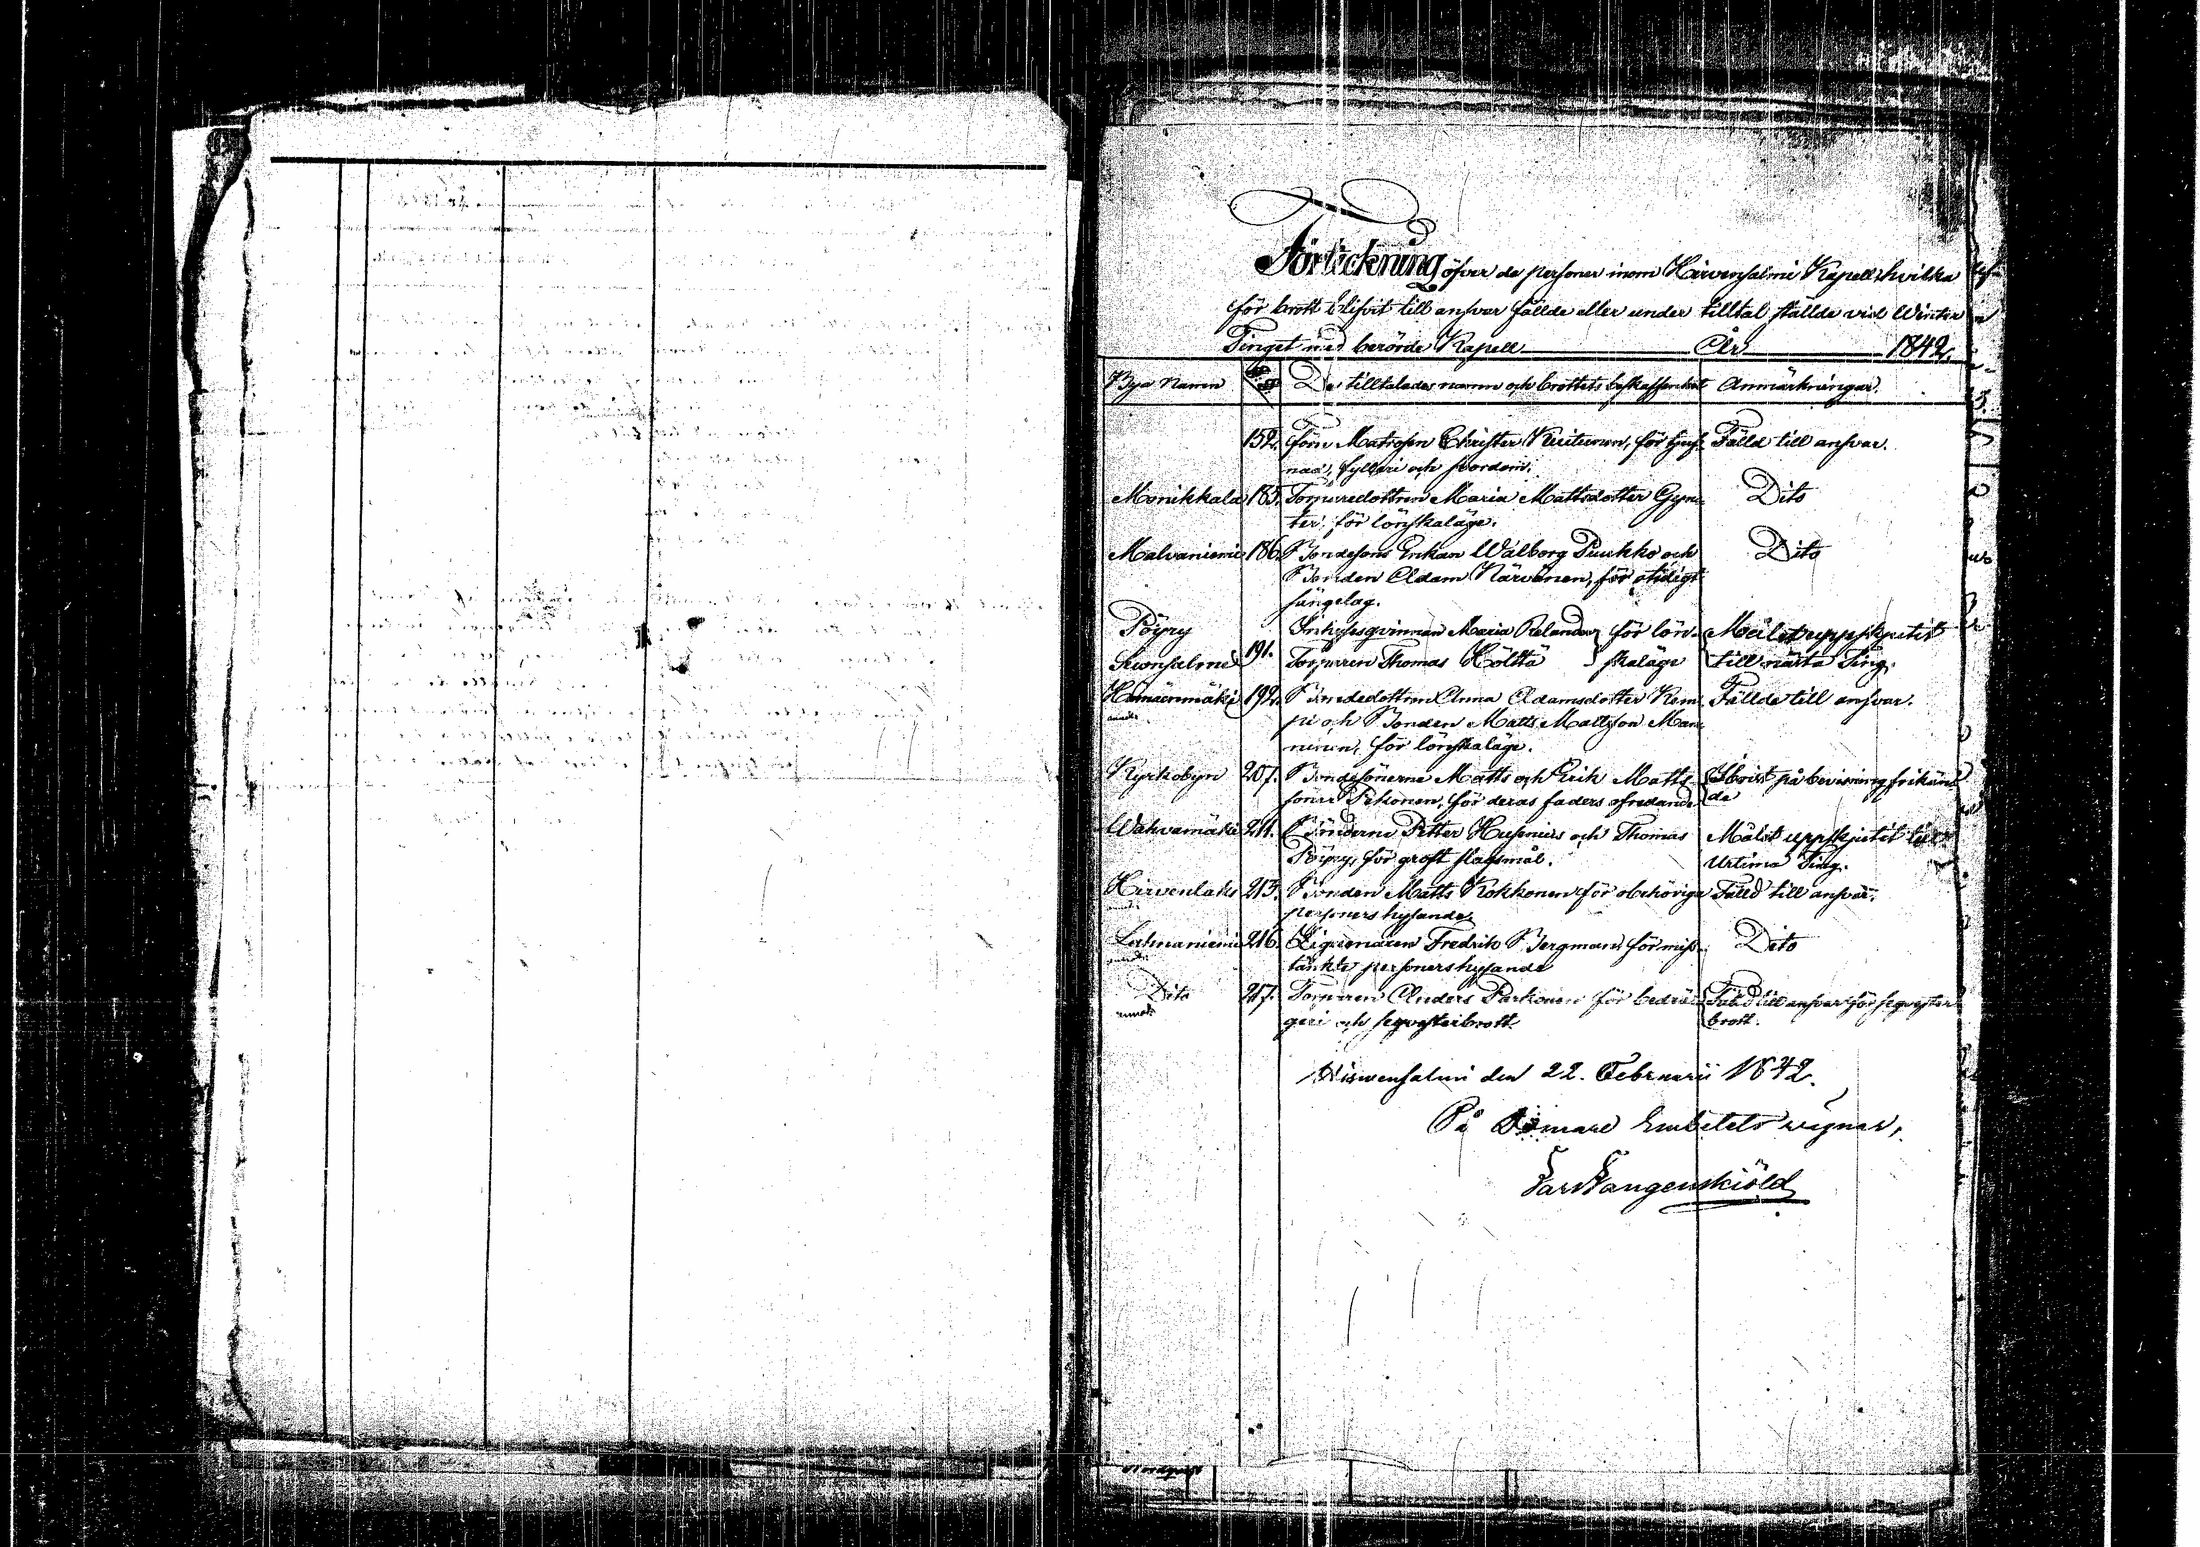 Förteckning öfver de personer inom Hirvensalmi Kapell, hvilka
för brott blifvit till ansvar fällde eller under tilltal ställde vid Winter
Tinget med berörde Kapell År 1842.
Bya Namn De tilltalades namn och brottets beskaffenhet Anmärkningar.
152. förre Matrosen Christer Kuitunen, för tjuf- Fälld till ansvar.
nad, fylleri och svordom.
Monikkala 185. Torparedottren Maria Mattsdotter Gyn- Dito
ter, för lönskaläge.
Malvaniemi 186. Bondesons Enkan Walborg Puukko och Dito
Bonden Adam Närvänen, för otidigt
sängelag.
Pöyry Inhysesqvinnan Maria Relander för lön- Målet uppskjutit
Suonsalmi 191. Torparen Thomas Hölttä skaläge till nästa Ting.
Hämäenmäki 192. Bondedottren Anna Adamsdotter Kem- Fällde till ansvar.
pi och Bonden Matts Mattsson Man-
ninen, för lönskaläge.
Kyrkobyn 207. Bondesönerne Matts och Erik Matts- I brist på bevisning frikän-
söner Pekonen, för deras faders ofredande de
Wahvamäki 211. Bönderne Petter Husenius och Thomas Målet uppskjutit till
Pöyry, för groft slagsmål. Urtima Ting.
Hirvenlaks 213. Bonden Matts Kokkonen för obehöriga Fälld till ansvar.
personers hysande
Lahnaniemi 216. Fredrik Bergman för miss- Dito
tänkte personers hysande
Dito 217. Torparen Anders Parkonen för bedrä- Fälld till ansvar för seqvester
geri och seqvesterbrott. brott.
Hirwensalmi den 22. Februarii 1842.
På Domare Embetets wägnar,
Langenskiöld